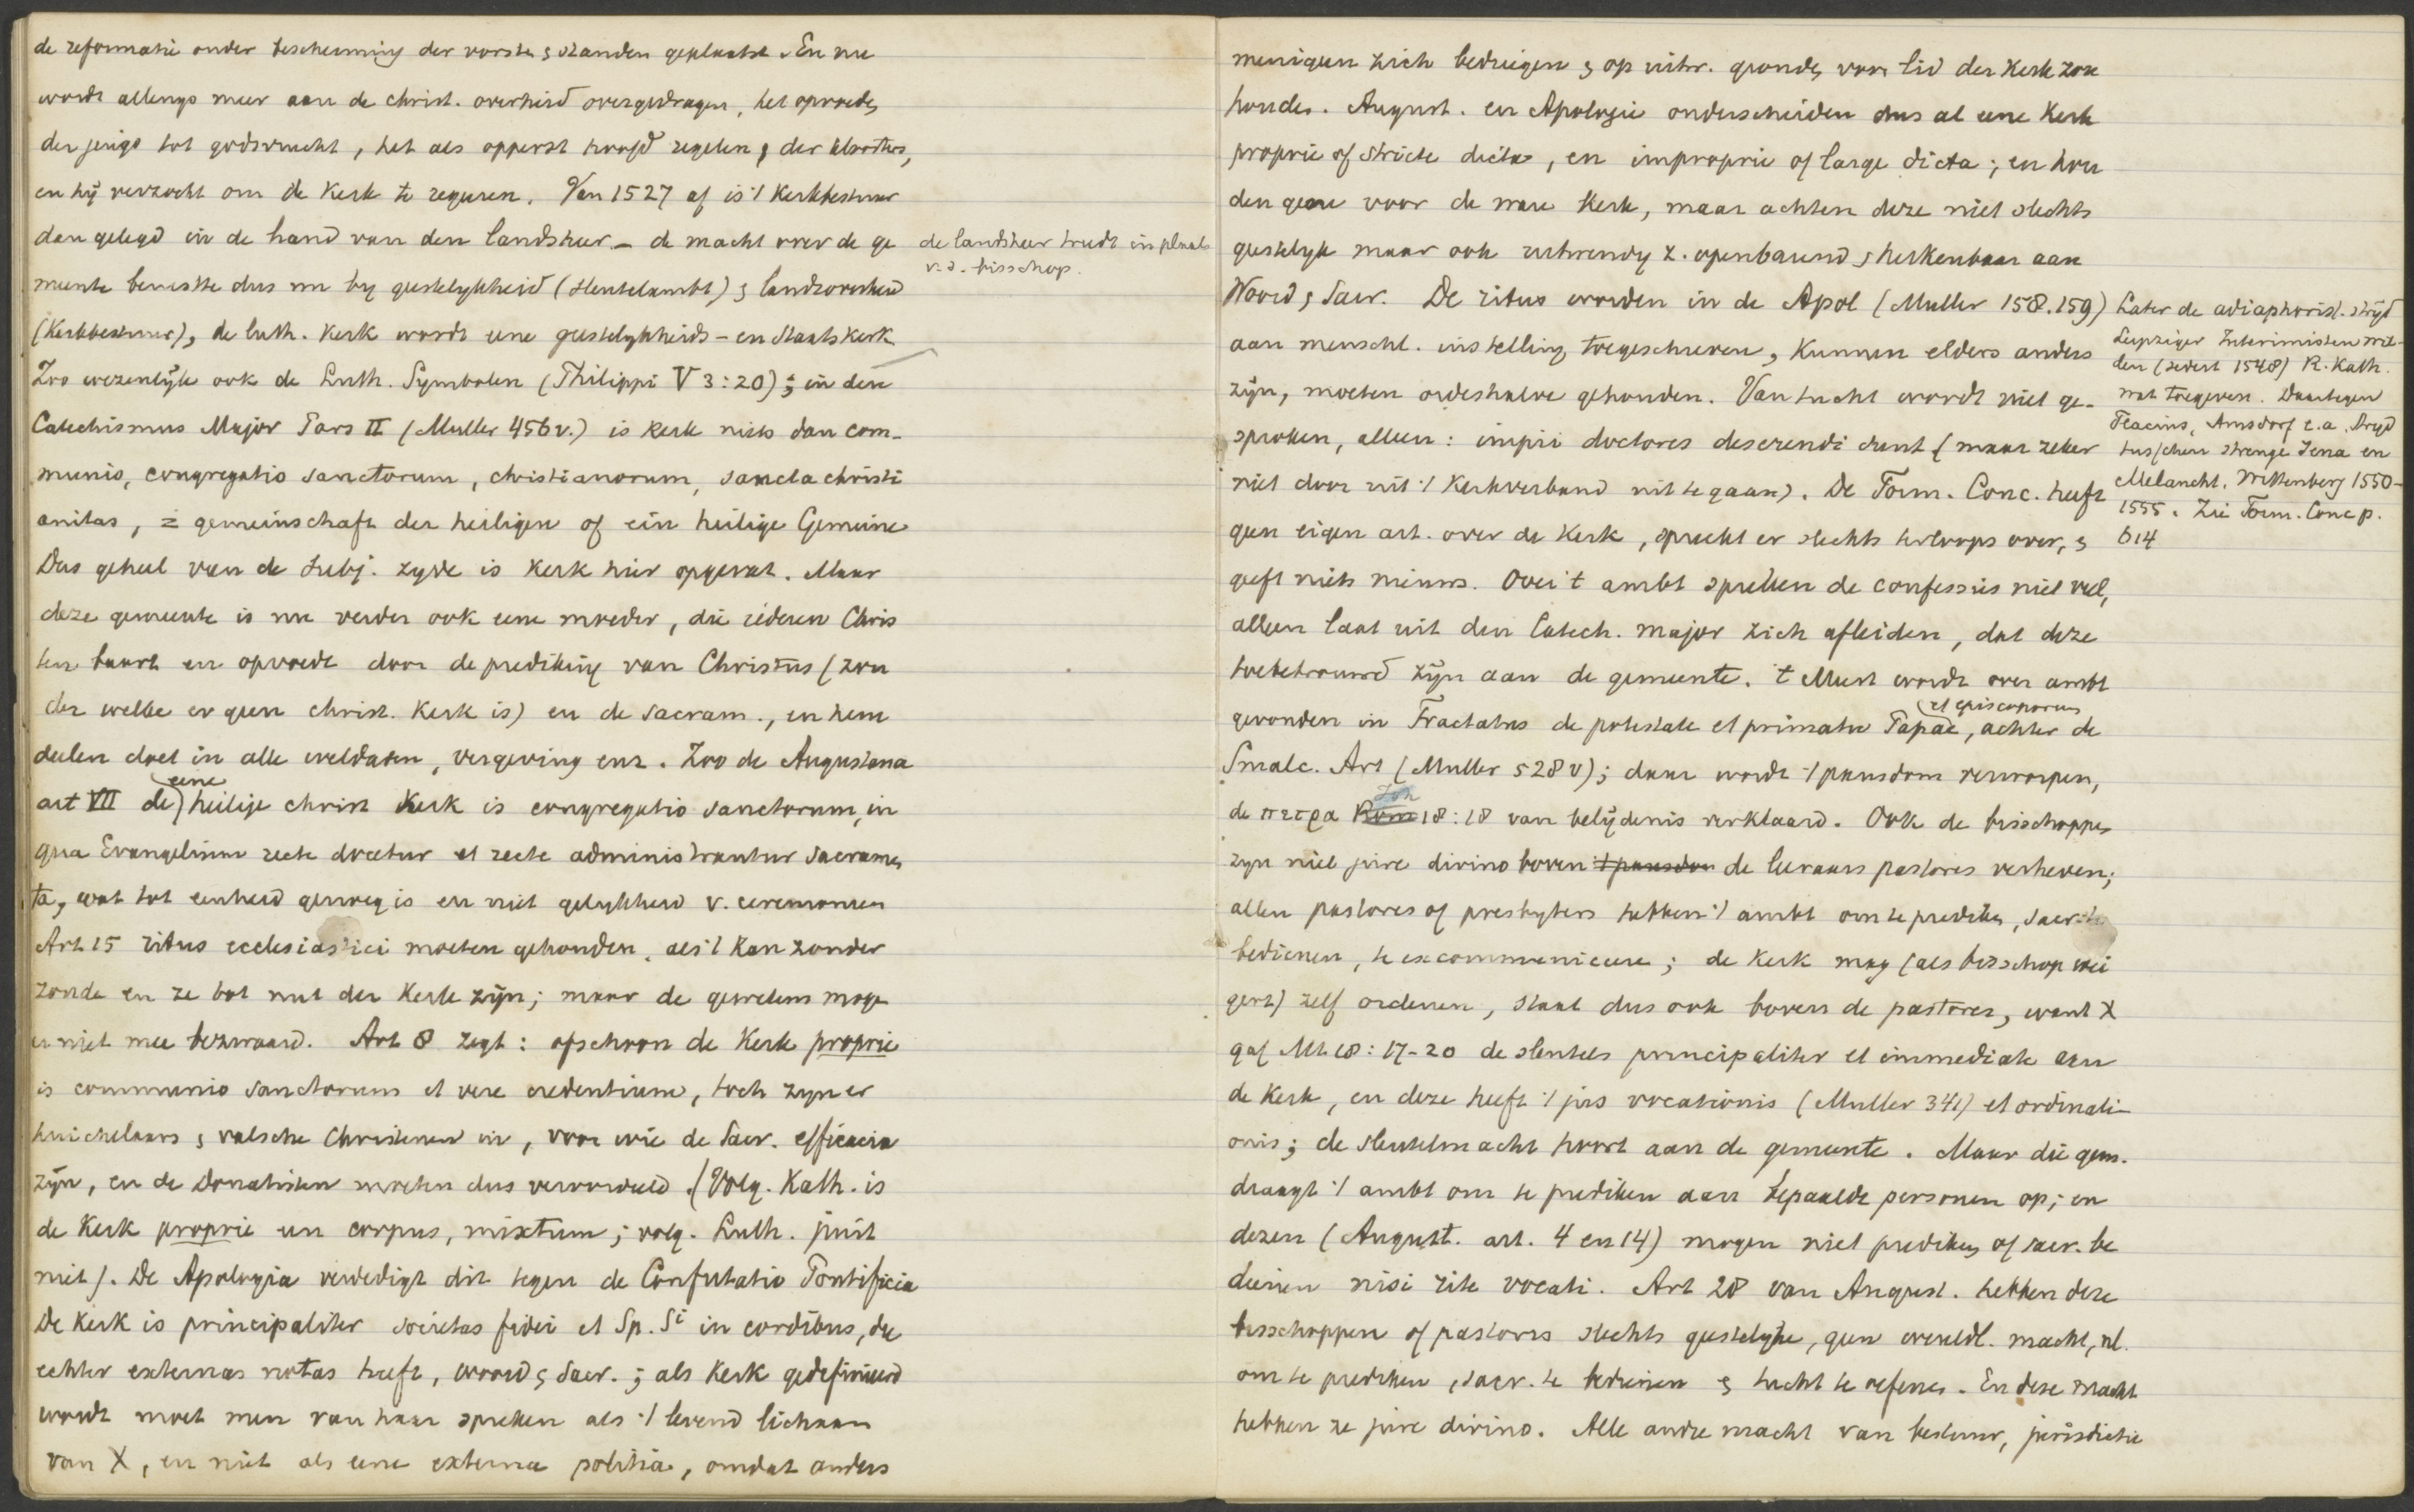 de reformatie onder bescherming der vorsten & standen geplaatst. En nu
wordt allengs meer aan de christ. overheid overgedragen, het opvoeden
der jeugd tot godsvrucht, het als opperst hoofd regelen der
en hij verzocht om de Kerk te regeeren. Van 1527 af is 't Kerkbestuur
dan gelegd in de hand van den landsheer – de macht over de ge
meente berustte dus nu by geestelykheid (sleutelambt) & landsoverheid
(Kerkbestuur), de luth. Kerk wordt eene geestelykheids- en Staatskerk
Zoo wezenlijk ook de Luth. Symbolen (Philippi V 3:20); in den
Catechismus Major Pars II (Muller 456 v.) is Kerk niets dan com-
munio, congregatio sanctorum, christianorum, sancta christi
anitas, = gemeinschaft der heiligen of ein heilige Gemeine
Dus geheel van de subj. zyde is Kerk hier opgevat. Maar
deze gemeente is nu verder ook eene moeder, die iederen Chris
ten baart en opvoedt door de prediking van Christus (zon
der welke er geen christ. Kerk is) en de sacram., en hem
deelen doet in alle weldaden, vergeving enz. Zoo de Augustana
art VII de eene heilige christ Kerk is congregatio sanctorum, in
qua Evangelium recte docetur et recte administrantur sacramen
ta, wat tot eenheid genoeg is en niet gelykheid v. ceremonien
Art 15 ritus ecclesiastici moeten gehouden, als 't kan zonder
zonde en ze tot nut der Kerk zijn; maar de gewetens moge
er niet mee bezwaard. Art 8 zegt: ofschoon de Kerk proprie
is communio sanctorum et vere credentium, toch zyn er
huichelaars & valsche Christenen in, voor wie de Sacr. efficacia
zijn, en de Donatisten worden dus veroordeeld. (Volg. Kath. is
de Kerk proprie een corpus, mixtum; volg. Luth. juist
niet). De Apologia verdedigt dit tegen de Confutatio Pontificia
De Kerk is principaliter societas fidei et Sp. Si in cordibus, die
echter externas notas heeft, woord & Sacr.; als Kerk gedefinieerd
wordt moet men van haar spreken als 't levend lichaam
van X, en niet als eene externa politia, omdat anders
de landsheer treedt in plaats
v. d. bisschop.
menigeen zich bedriegen & op uitw. gronden voor lid der Kerk zou
houden. August. en Apologie onderscheiden dus al eene Kerk
proprie of stricte dicta, en improprie of large dicta; en hou
den gene voor de ware Kerk, maar achten deze niet slechts
geestelyk maar ook uitwendig z. openbarend & herkenbaar aan
Woord & Sacr. De ritus worden in de Apol (Muller 158.159)
aan menschl. instelling toegeschreven, kunnen elders anders
zijn, moeten ordeshalve gehouden. Van tucht wordt niet ge-
sproken, alleen: impii doctores deserendi sunt (maar zeker
niet door uit 't Kerkverband uit te gaan). De Form. Conc. heeft
geen eigen art. over de Kerk, spreekt er slechts terloops over, &
geeft niets nieuws. Over 't ambt spreken de confessies niet veel,
alleen laat uit den Catech. major zich afleiden, dat deze
toebetrouwd zijn aan de gemeente. 't Meest wordt over ambt
gevonden in Tractatus de potestate et primatu Papae, et episcoporum achter de
Smalc. Art (Muller 328 v); daar wordt 't pausdom verworpen,
de πετρα Rom Joh 18:18 van belijdenis verklaard. Ook de bisschoppen
zyn niet jure divino boven 't pausdom de leeraars pastores verheven;
allen pastores of presbyters hebben 't ambt om te prediken, sacr. te
bedienen, te excommuniceeren; de Kerk mag (als bisschop wei
gert) zelf ordenen, staat dus ook boven de pastores, want X
gaf Mt. 18:17-20 de sleutels principaliter et immediate aan
de Kerk, en deze heeft 't jus vocationis (Muller 341) et ordinati-
onis; de sleutelmacht hoort aan de gemeente. Maar die gem.
draagt 't ambt om te prediken aan bepaalde personen op; en
dezen (August. art. 4 en 14) mogen niet prediken of sacr. be
dienen nisi rite vocati. Art 28 van August. hebben deze
bisschoppen of pastores slechts geestelyke, geen wereldl. macht, nl.
om te prediken, sacr. te bedienen & tucht te oefenen. En deze macht
hebben ze jure divino. Alle andre macht van bestuur, jurisdictie
Later de adiaphorist. strijd
Leipziger Interimisten wil-
den (sedert 1548) R. Kath.
wat toegeven. Daartegen
Flacius, Amsdorf e.a. Strijd
tusschen strenge Jena en
Melancht. Wittenberg 1550-
1555. Zie Form. Conc p.
614